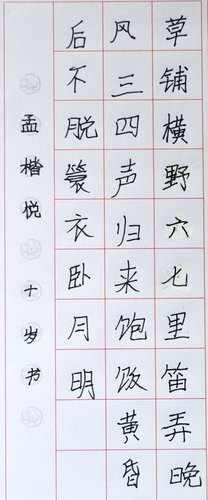 草铺横野六七里笛弄晚
风三四声归来饱饭黄昏
后不脱蓑衣卧月明
孟楷悦十岁书